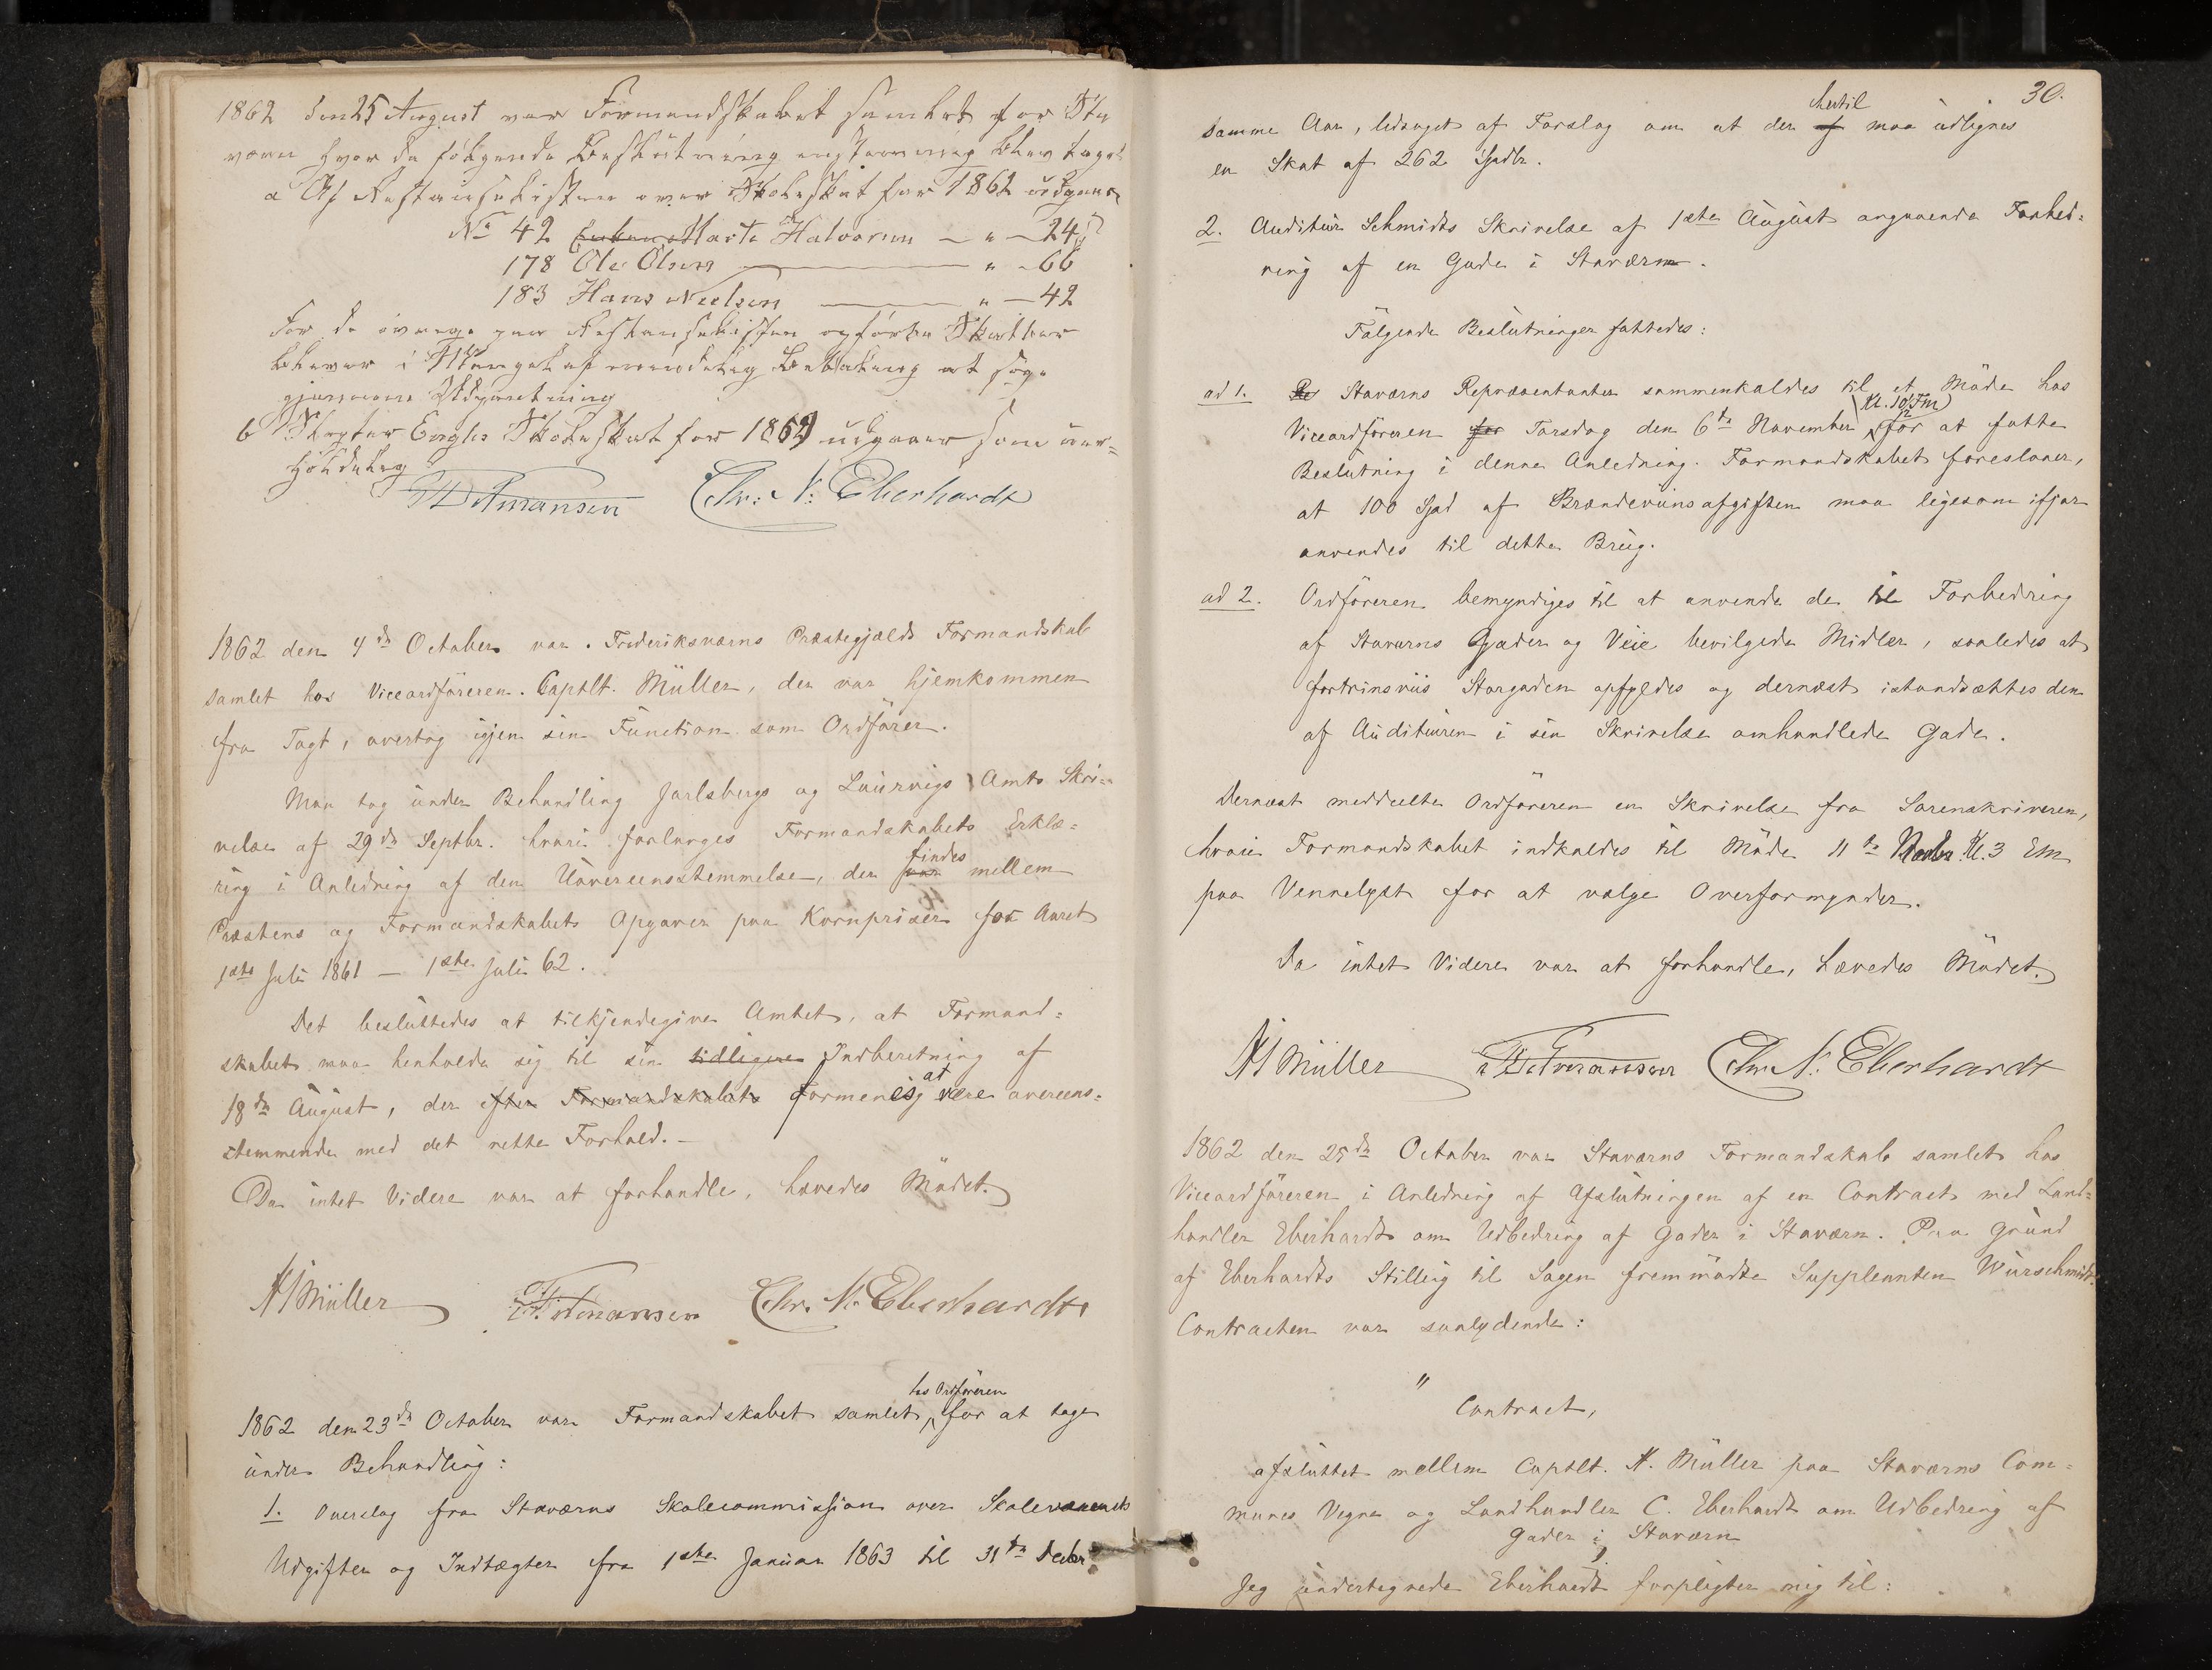 1862 den 25 August var Formandskabet samlet for Sta
værn hvor da følgende Beslutning angaaende blev taget
a Af Restanselisten over Skoleskat for 1862 udgaaer
No 42 Marte Halvorsen — " — 24 ß
178 Ole Olsen — " - 66
183 Hans Neelsen — " — 42
For de øvrige paa Restanselisten opførte Skatter
bliver i Mangel af mindelig Betaling at søge
gjennem Udpantning
b Skoleskat for 1862 udgaaer som uer-
holdelig
Chr: N: Eberhardt
1862 den 4de October var Frederiksværns Præstegjælds Formandskab
samlet hos Viceordføreren. Captlt. Müller, der var hjemkommen
fra Togt, overtog igjen sin Function som Ordfører.
Man tog under Behandling Jarlsbergs og Laurvigs Amts Skri-
velse af 29de Septbr. hvori forlanges Formandskabets Erklæ-
ring i Anledning af den Uovereensstemmelse, der findes mellem
Præstens og Formandskabets Opgaver paa Kornpriser for Aaret
1ste Juli 1861 — 1ste Juli 62.
Det besluttedes at tilkjendegive Amtet, at Formand-
skabet maa henholde sig til sin tidligere Indberetning af
18de August, der efter Formandskabets Formening at være overeens-
stemmende med det rette Forhold. —
Da intet Videre var at forhandle, hævedes Mödet.
N Müller Chr. N. Eberhardt
hos Ordføreren
1862 den 23de October var Formandskabet samlet, for at tage
under Behandling:
1. Overslag fra Staværns Skolecommission over Skolevæsenets
Udgifter og Indtægter fra 1ste Januar 1863 til 31te Decbr
30.
hertil
samme Aar, ledsaget af Forslag om at der af maa udlignes
en Skat af 262 Spdlr.
2. Auditør Schmidts Skrivelse af 1ste August angaaende Forbed-
ring af en Gade i Staværn.
Følgende Beslutninger fattedes:
ad 1. Staværns Repræsentanter sammenkaldes til et Möde hos
Viceordføreren for Torsdag den 6te November (Kl. 10½ Fm) for at fatte
Beslutning i denne Anledning. Formandskabet foreslaaer,
at 100 Spd af Brændeviinsafgiften maa ligesom ifjor
anvendes til dette Brug.
ad 2. Ordføreren bemyndiges til at anvende de til Forbedring
af Staværns Gader og Veie bevilgede Midler, saaledes at
fortrinsviis Storgaden opfyldes og dernæst istandsættes den
af Auditøren i sin Skrivelse omhandlede Gade.
Dernæst meddeelte Ordføreren en Skrivelse fra Sorenskriveren,
hvori Formandskabet indkaldes til Möde 11te Novbr. Kl. 3 Em
paa Vennelyst for at vælge Overformynder.
Da intet Videre var at forhandle, hævedes Mödet.
N Müller Chr. N. Eberhardt
1862 den 25de October var Staværns Formandskab samlet hos
Viceordføreren i Anledning af Afslutningen af en Contract med Land-
handler Eberhardt om Udbedring af Gader i Staværn. Paa Grund
af Eberhardts Stilling til Sagen fremmødte Suppleanten Würschmidt.
Contracten var saalydende:
"
Contract,
afsluttet mellem Captlt. N. Müller paa Staværns Com-
munes Vegne og Landhandler C. Eberhardt om Udbedring af
Gader i Staværn
Jeg undertegnede Eberhardt forpligter mig til: